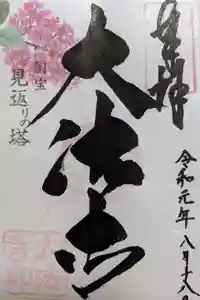 奉拝
令和元年八月十八日
大法寺
国宝
見返りの塔